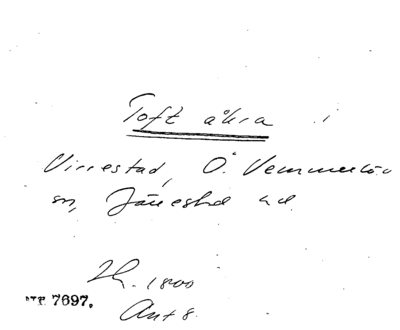 Toft åkra
Virrestad, Ö. Vemmerlöv
sn, Järrestad hd.
Lh. 1800
7697.
Ant 8.